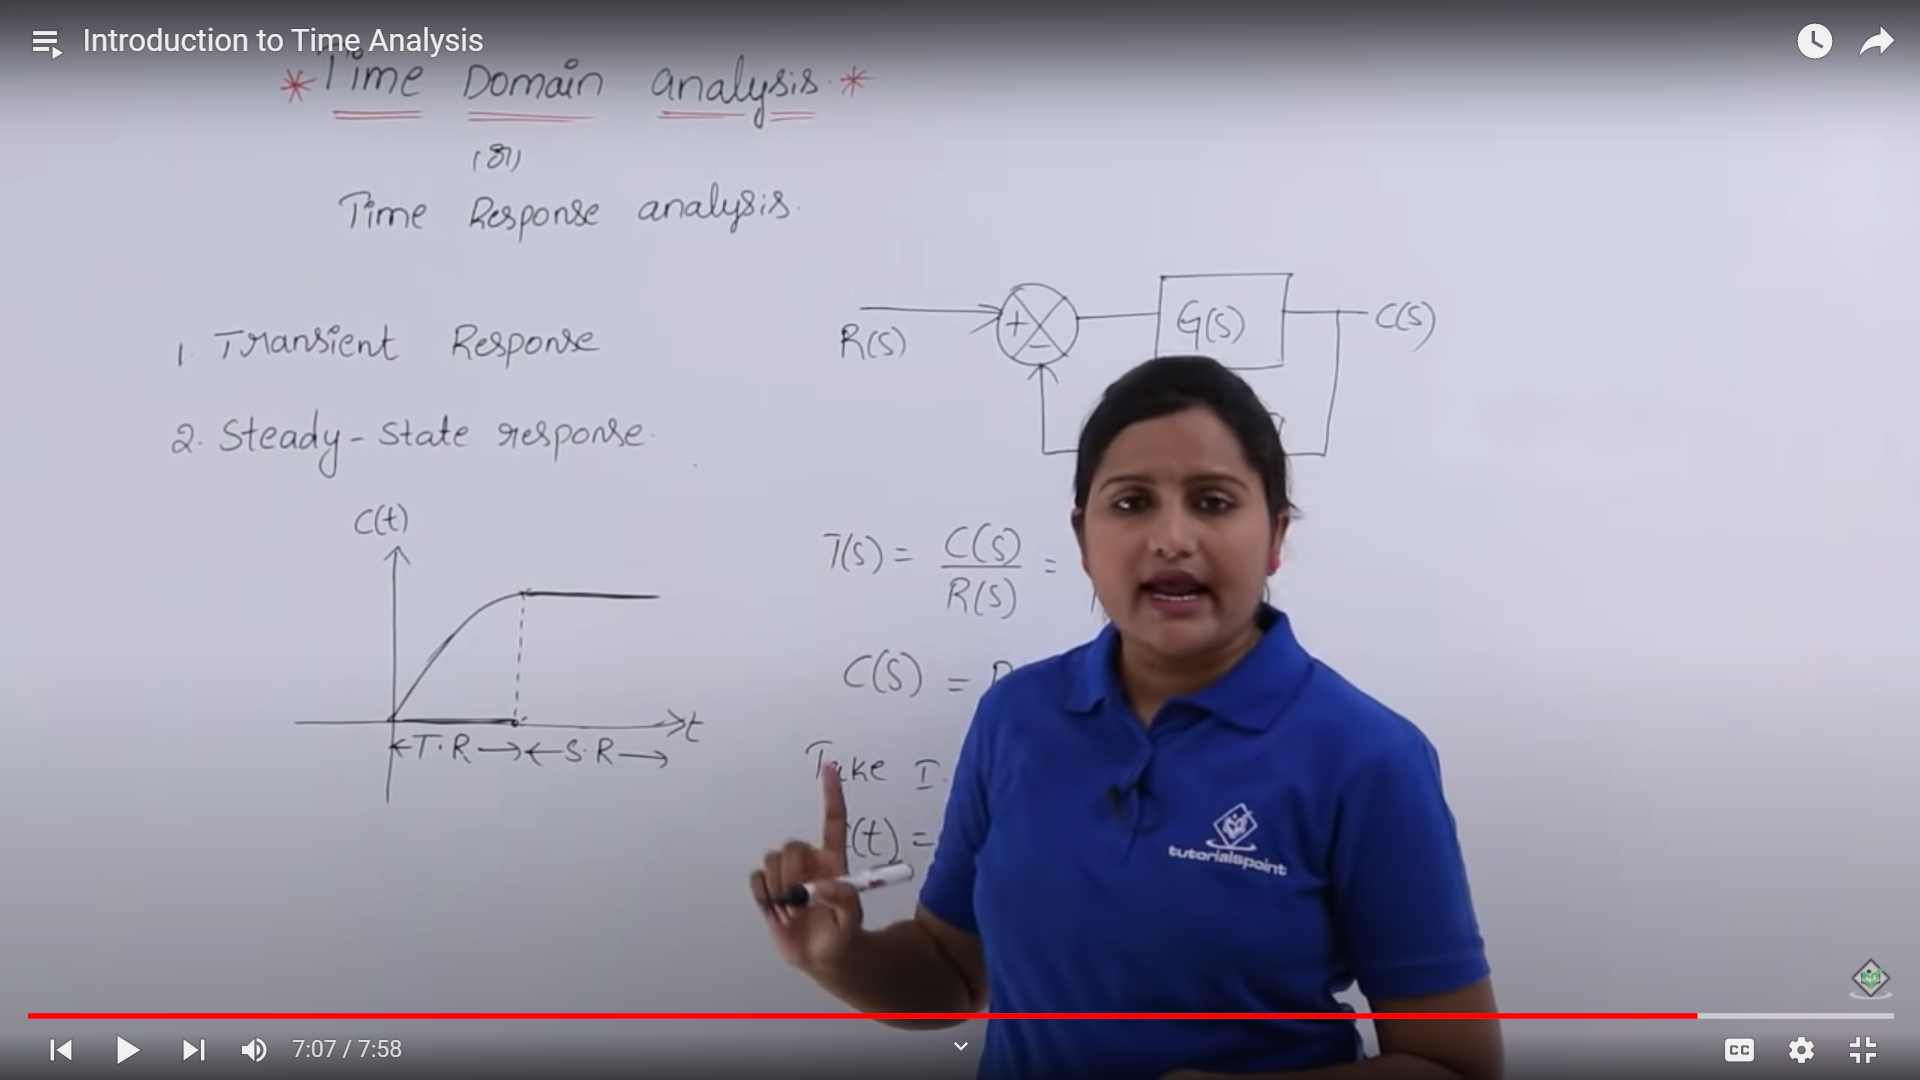 Introduction to Time Analysis
* Time Domain analysis. *
(or)
Time Response analysis.
1. Transient Response
2. Steady-State response.
C(t)
t
T.R
S.R
R(S)
+
-
G(S)
C(S)
T(S) = C(S)/R(S) =
C(S) =
Take I.
(t) =
tutorialspoint
7:07 / 7:58
CC